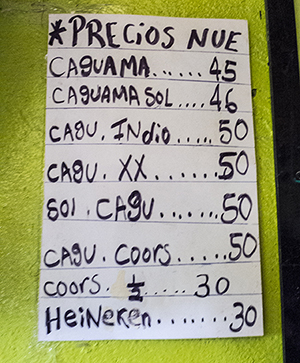 *PRECIOS NUE
CAGUAMA......45
CAGUAMA SOL....46
CAGU. INDIO.....50
CAGU. XX.......50
SOL. CAGU.......50
CAGU. COORS.....50
COORS. ½.....30
HEINEKEN.......30